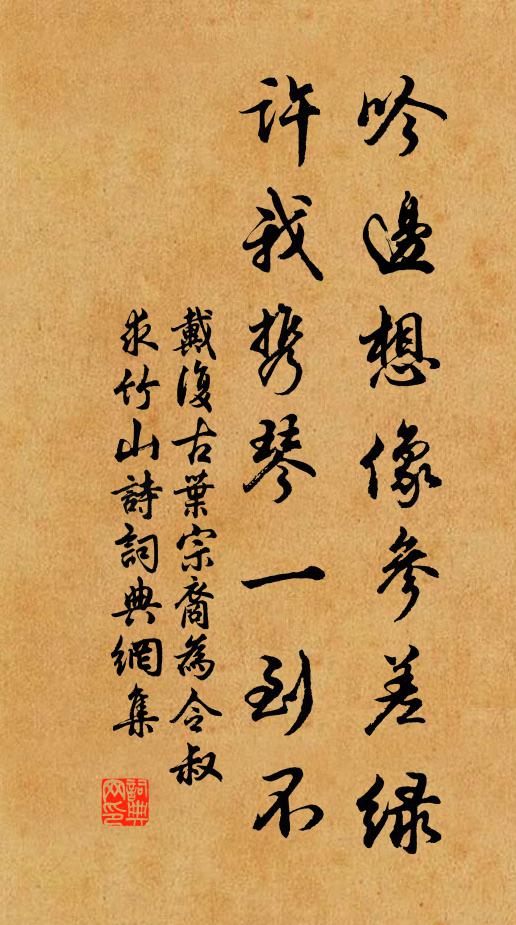 吟邊想像參差綠
許我攜琴一到不
戴復古葉宗裔為令叔
求竹山詩詞典網集
詞典网印